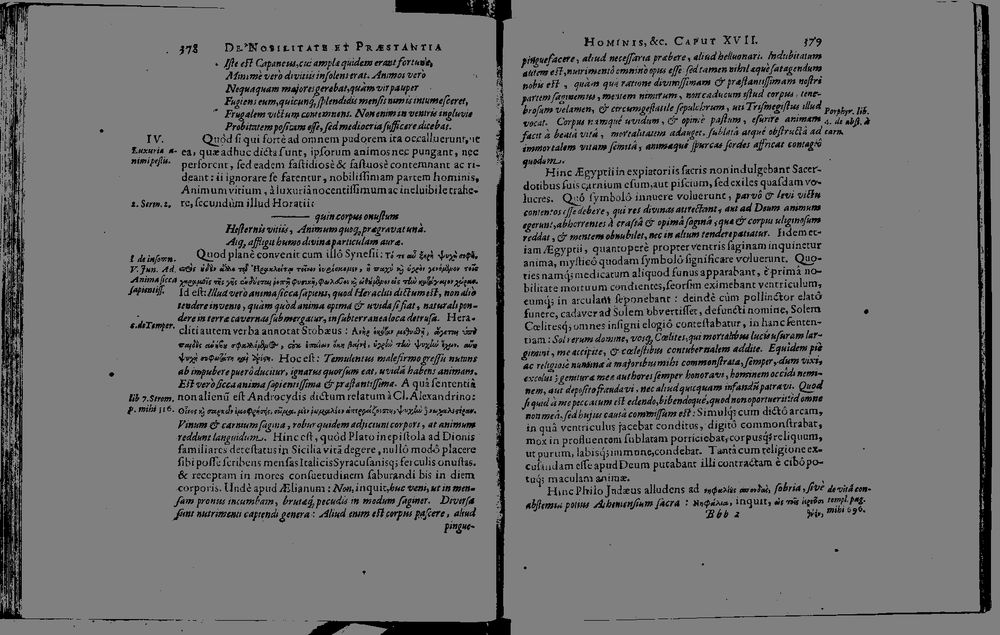 378 DE NOBILITATE ET PRÆSTANTIA
Iste est Capaneus, cui ampla quidem erant fortunæ,
Minimè verò divitiis insolens erat. Animos verò
Nequaquam majores gerebat, quam vir pauper
Fugiens eum, quicunq́, splendidis mensis nimis intumesceret,
Frugalem victum contemnens. Non enim in ventris ingluvie
Probitatem positam esse, sed mediocria sufficere dicebat.
IV.
Luxuria animi pestis.
Quòd si qui fortè ad omnem pudorem ita occalluerunt, ut
ea, quæ adhuc dicta sunt, ipsorum animos nec pungant, nec
perforent, sed eadem fastidiosè & fastuosè contemnant ac rideant:
ii ignorare se fatentur, nobilissimam partem hominis,
Animum vitiùm, à luxuriâ nocentissimum ac ineluibile trahere,
secundùm illud Horatii:
2. Serm. 2.
quin corpus onustum
Hesternis vitiis, Animum quoq, prægravat unà.
Atq, affligit humo divinæ particulam auræ.
Quod planè convenit cum illo Synesii:
l. de insomn.
V. Jun. Ad.
Anima sicca
sapientiss.
Id est: Illud verò anima sicca sapiens, quod Heraclito dictum est, non aliò
tendere invenio, quàm quòd anima opima & uvida si fiat, naturali pondere
in terræ cavernas submergatur, in subterranea loca detrusa. Heracliti
autem verba annotat Stobæus:
s. de Temper.
Hoc est: Temulentus malefirmo gressu nutans
ab impubere puero ducitur, ignarus quorsum eat, uvidâ habens animam.
Est verò sicca anima sapientissima & præstantissima. A quâ sententiâ
non alienû est Androcydis dictum relatum à Cl. Alexandrino:
lib 7. Strom.
p. mihi 316.
Vinum & carnium sagina, robur quidem adjiciunt corpori, at animum
reddunt languidum. Hinc est, quòd Plato in epistola ad Dionis
familiares detestatus in Sicilia vitâ degere, nullò modò placere
sibi posse scribens mensas Italicis Syracusanisq; ferculis onustas.
& receptam in mores consuetudinem saburandi bis in diem
corporis. Undè apud Ælianum: Non, inquit, huc veni, ut in mensam
pronus incumbam, brutæq, pecudis in modum saginer. Diversa
sunt nutrimenti capiendi genera: Aliud enim est corpus pascere, aliud
pingue-
HOMINIS, &c. CAPUT XVII. 379
pinguefacere, aliud necessaria præbere, aliud helluonari. Indubitatum
autem est, nutrimentô omninò opus esse sed tamen nihil æquè satagendum
nobis est, quàm quæ ratione divinissimam & præstantissimam nostri
partem saginemus, mentem nimirum, non caducum istud corpus, tenebrosum
velamen, & circumgestatile sepulchrum, uti Trismegistus illud
vocat. Corpus namque uvidum, & opimè pastum, esurire animam
facit à beatâ vitâ, mortalitatem adauget. sublatâ atque obstructâ ad
immortalem vitam semitâ, animæque spurcas sordes affricat contagiô
quodam.
Porphyr. lib.
4. de abst. à
carn.
Hinc Ægyptii in expiatoriis sacris non indulgebant Sacerdotibus
suis carnium esum, aut piscium, sed exiles quasdam volucres.
Quô symbolô innuere voluerunt, parvô & levi victu
contentos esse debere, qui res divinas attrectant, aut ad Deum animum
egerunt, abhorrentes à crassâ & opimâ saginâ; quæ & corpus uliginosum
reddat, & mentem obnubilet, nec in altum tendere patiatur. Iidem etiam
Ægyptii, quantoperè propter ventris saginam inquinetur
anima, mysticô quodam symbolô significare voluerunt. Quoties
namq; medicatum aliquod funus apparabant, è primâ nobilitate
mortuum condientes, seorsim eximebant ventriculum,
eumq; in arculam seponebant: deindè cùm pollinctor elatô
funere, cadaver ad Solem obvertisset, defuncti nomine, Solem
Cœlitesq; omnes insigni elogiô contestabatur, in hanc sententiam:
Sol rerum domine, vosq, Cœlites, qui mortalibus lucis usuram largimini,
me accipite, & cœlestibus contubernalem addite. Equidem piè
ac religiosè numina à majoribus mihi commonstrata, semper, dum vixi,
excolui; genituræ meæ authores semper honoravi, hominem occidi neminem,
aut deposito fraudavi, nec aliud quicquam infandū patravi. Quod
si quid à me peccatum est edendo, bibendoque, quod non oportuerit id omne
non meâ, sed hujus causâ commissum est: Simulq; cum dictô arcam,
in quâ ventriculus jacebat conditus, digitô commonstrabat,
mox in profluentem sublatam porriciebat, corpusq; reliquum,
ut purum, labisq; immune, condebat. Tantâ cum religione excusandam
esse apud Deum putabant illi contractam è cibô potuq;
maculam animæ.
Hinc Philo Judæus alludens ad
sobria, sivè
abstemia potius Atheniensium sacra:
inquit,
de vitâ contempl.
pag.
mihi 696.
Bbb 2